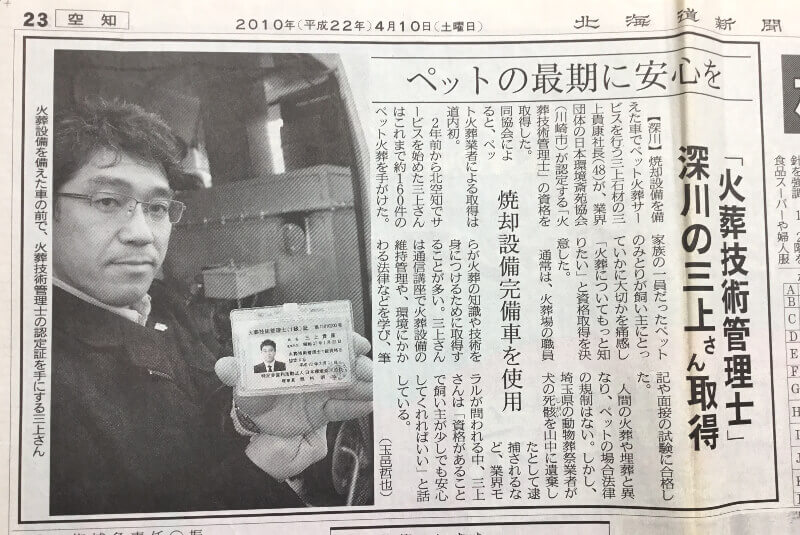 23 空知
2010年(平成22年)4月10日(土曜日)
北海道新聞
ペットの最期に安心を
「火葬技術管理士」
深川の三上さん取得
焼却設備完備車を使用
【深川】焼却設備を備
えた車でペット火葬サー
ビスを行う三上石材の三
上貴康社長(48)が、業界
団体の日本環境斎苑協会
(川崎市)が認定する「火
葬技術管理士」の資格を
取得した。
同協会によ
ると、ペッ
ト火葬業者による取得は
道内初。
2年前から北空知でサ
ービスを始めた三上さん
はこれまで約160件の
ペット火葬を手がけた。
家族の一員だったペット
のみとりが飼い主にとっ
ていかに大切かを痛感し
「火葬についてもっと知
りたい」と資格取得を決
意した。
通常は、火葬場の職員
らが火葬の知識や技術を
身につけるために取得す
ることが多い。三上さん
は通信講座で火葬設備の
維持管理や、環境にかか
わる法律などを学び、筆
記や面接の試験に合格し
た。
人間の火葬や埋葬と異
なり、ペットの場合法律
の規制はない。しかし、
埼玉県の動物葬祭業者が
犬の死骸を山中に遺棄し
たとして逮
捕されるな
ど、業界モ
ラルが問われる中、三上
さんは「資格があること
で飼い主が少しでも安心
してくれればいい」と話
している。
(玉邑哲也)
火葬設備を備えた車の前で、火葬技術管理士の認定証を手にする三上さん
火葬技術管理士
食品スーパーや婦人服
A
B
C
D
E
F
G
H
I
J
K
L